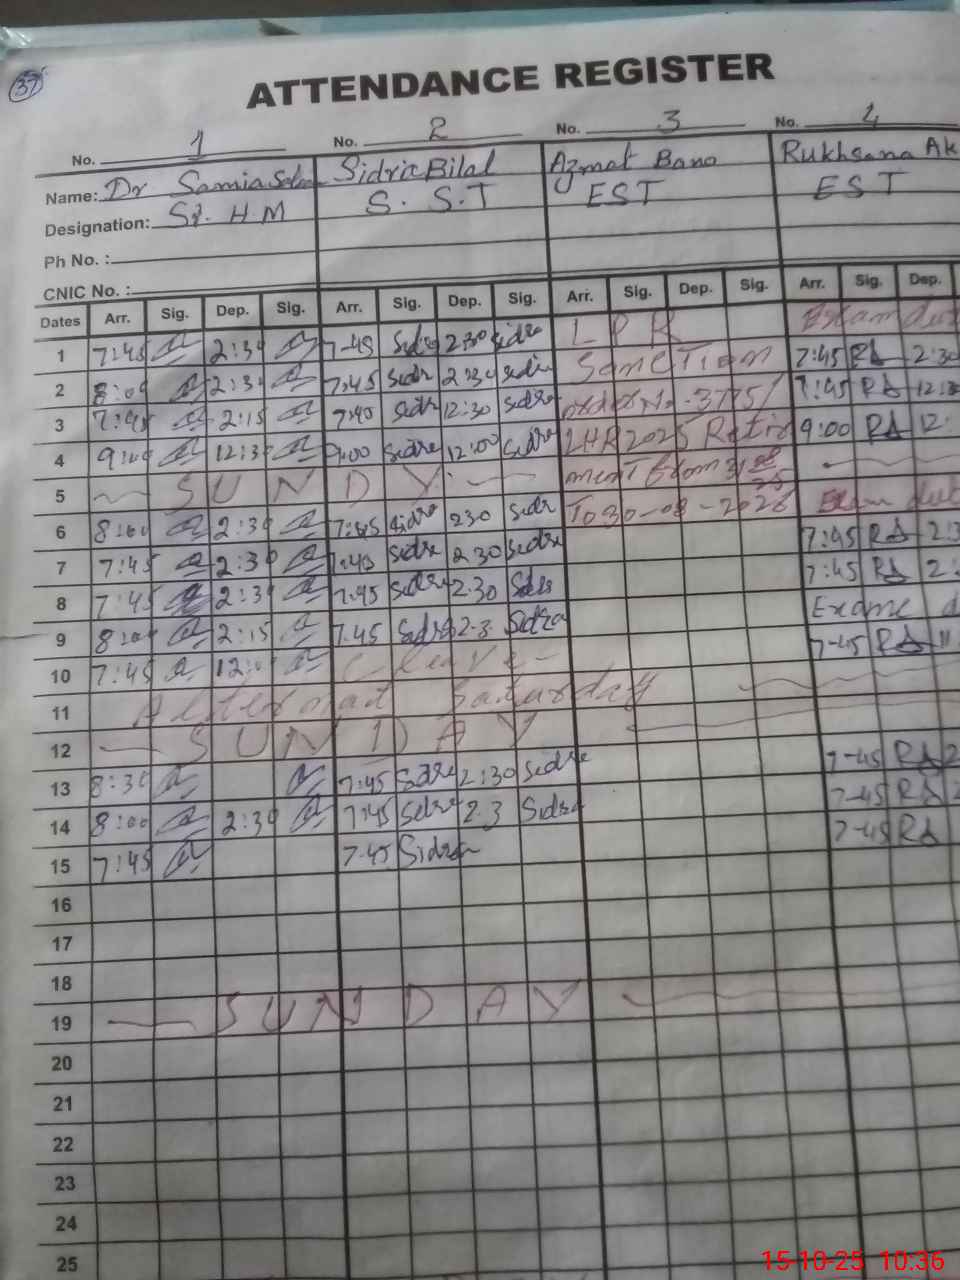 37
ATTENDANCE REGISTER
No. 1 No. 2 No. 3 No. 4
Name: Dr Samia Sidric Bilal Azmat Bano Rukhsana Ak
Designation: Sr. H M S. S.T EST EST
Ph No. :
CNIC No. :
Dates Arr. Sig. Dep. Sig. Arr. Sig. Dep. Sig. Arr. Sig. Dep. Sig. Arr. Sig. Dep.
1 7:45 2:30 7-45 Sidra 2:30 Sidra L P R Exam dut
2 8:00 2:30 7:45 Sidr 2:30 Sidra Sanction 7:45 RA 2:30
3 7:45 2:15 7:40 Sidra 12:30 Sidra order No-3775/ 7:45 RA 12:3
4 9:00 12:30 9:00 Sidra 12:00 Sidra LHR 2025 Retir 9:00 RA 12:
5 S U N D Y ment from 31 08 25
6 8:00 2:30 7:45 Sidra 230 Sidr To 30-08-2026 Exam dut
7 7:45 2:30 7:45 Sidra 2 30 Sidra 7:45 RA 2:3
8 7:45 2:30 7.45 Sidra 2.30 Sidra 7:45 RA 2:
9 8:00 2:15 7.45 Sidra 2.3 Sidra Exame d
10 7:45 12:0 C leave - 7-45 RA 11
11 Alternat Saturday
12 S U N D A Y
13 8:30 7:45 Sidra 2:30 Sidra 7-45 RA 2
14 8:00 2:30 7:45 Sidra 2.3 Sidra 7-45 RA 2
15 7:45 7.45 Sidra 7-45 RA
16
17
18
19 S U N D A Y
20
21
22
23
24
25
15-10-25 10:36